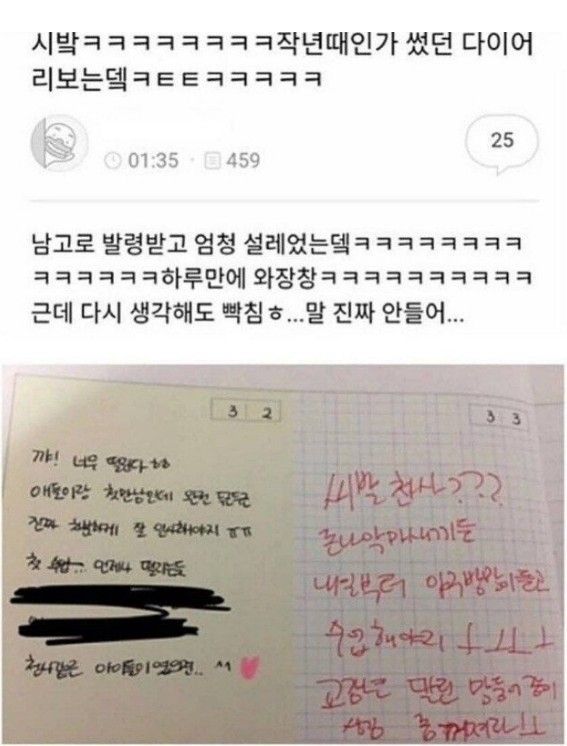 시밬ㅋㅋㅋㅋㅋㅋㅋㅋ작년때인가 썼던 다이어
리보는뎈ㅋㅌㅌㅋㅋㅋㅋㅋ
25
01:35 · 459
남고로 발령받고 엄청 설레었는뎈ㅋㅋㅋㅋㅋㅋㅋ
ㅋㅋㅋㅋㅋㅋ하루만에 와장창ㅋㅋㅋㅋㅋㅋㅋㅋㅋㅋ
근데 다시 생각해도 빡침ㅎ...말 진짜 안들어...
3 2
꺄! 너무 떨린다 ㅎㅎ
애들이랑 첫만남인데 완전 두근두근
진짜 하게 잘 인사해야지 ㅠㅠ
첫 수업... 언제나 떨리는듯
천사같은 아이들이였으면.. ^^
3 3
씨발 천사???
존나 악마새끼들
내일부터 야구방망이들고
수업해야리 ㅗㅜㅜㅗ
고장난 말린 망둥어